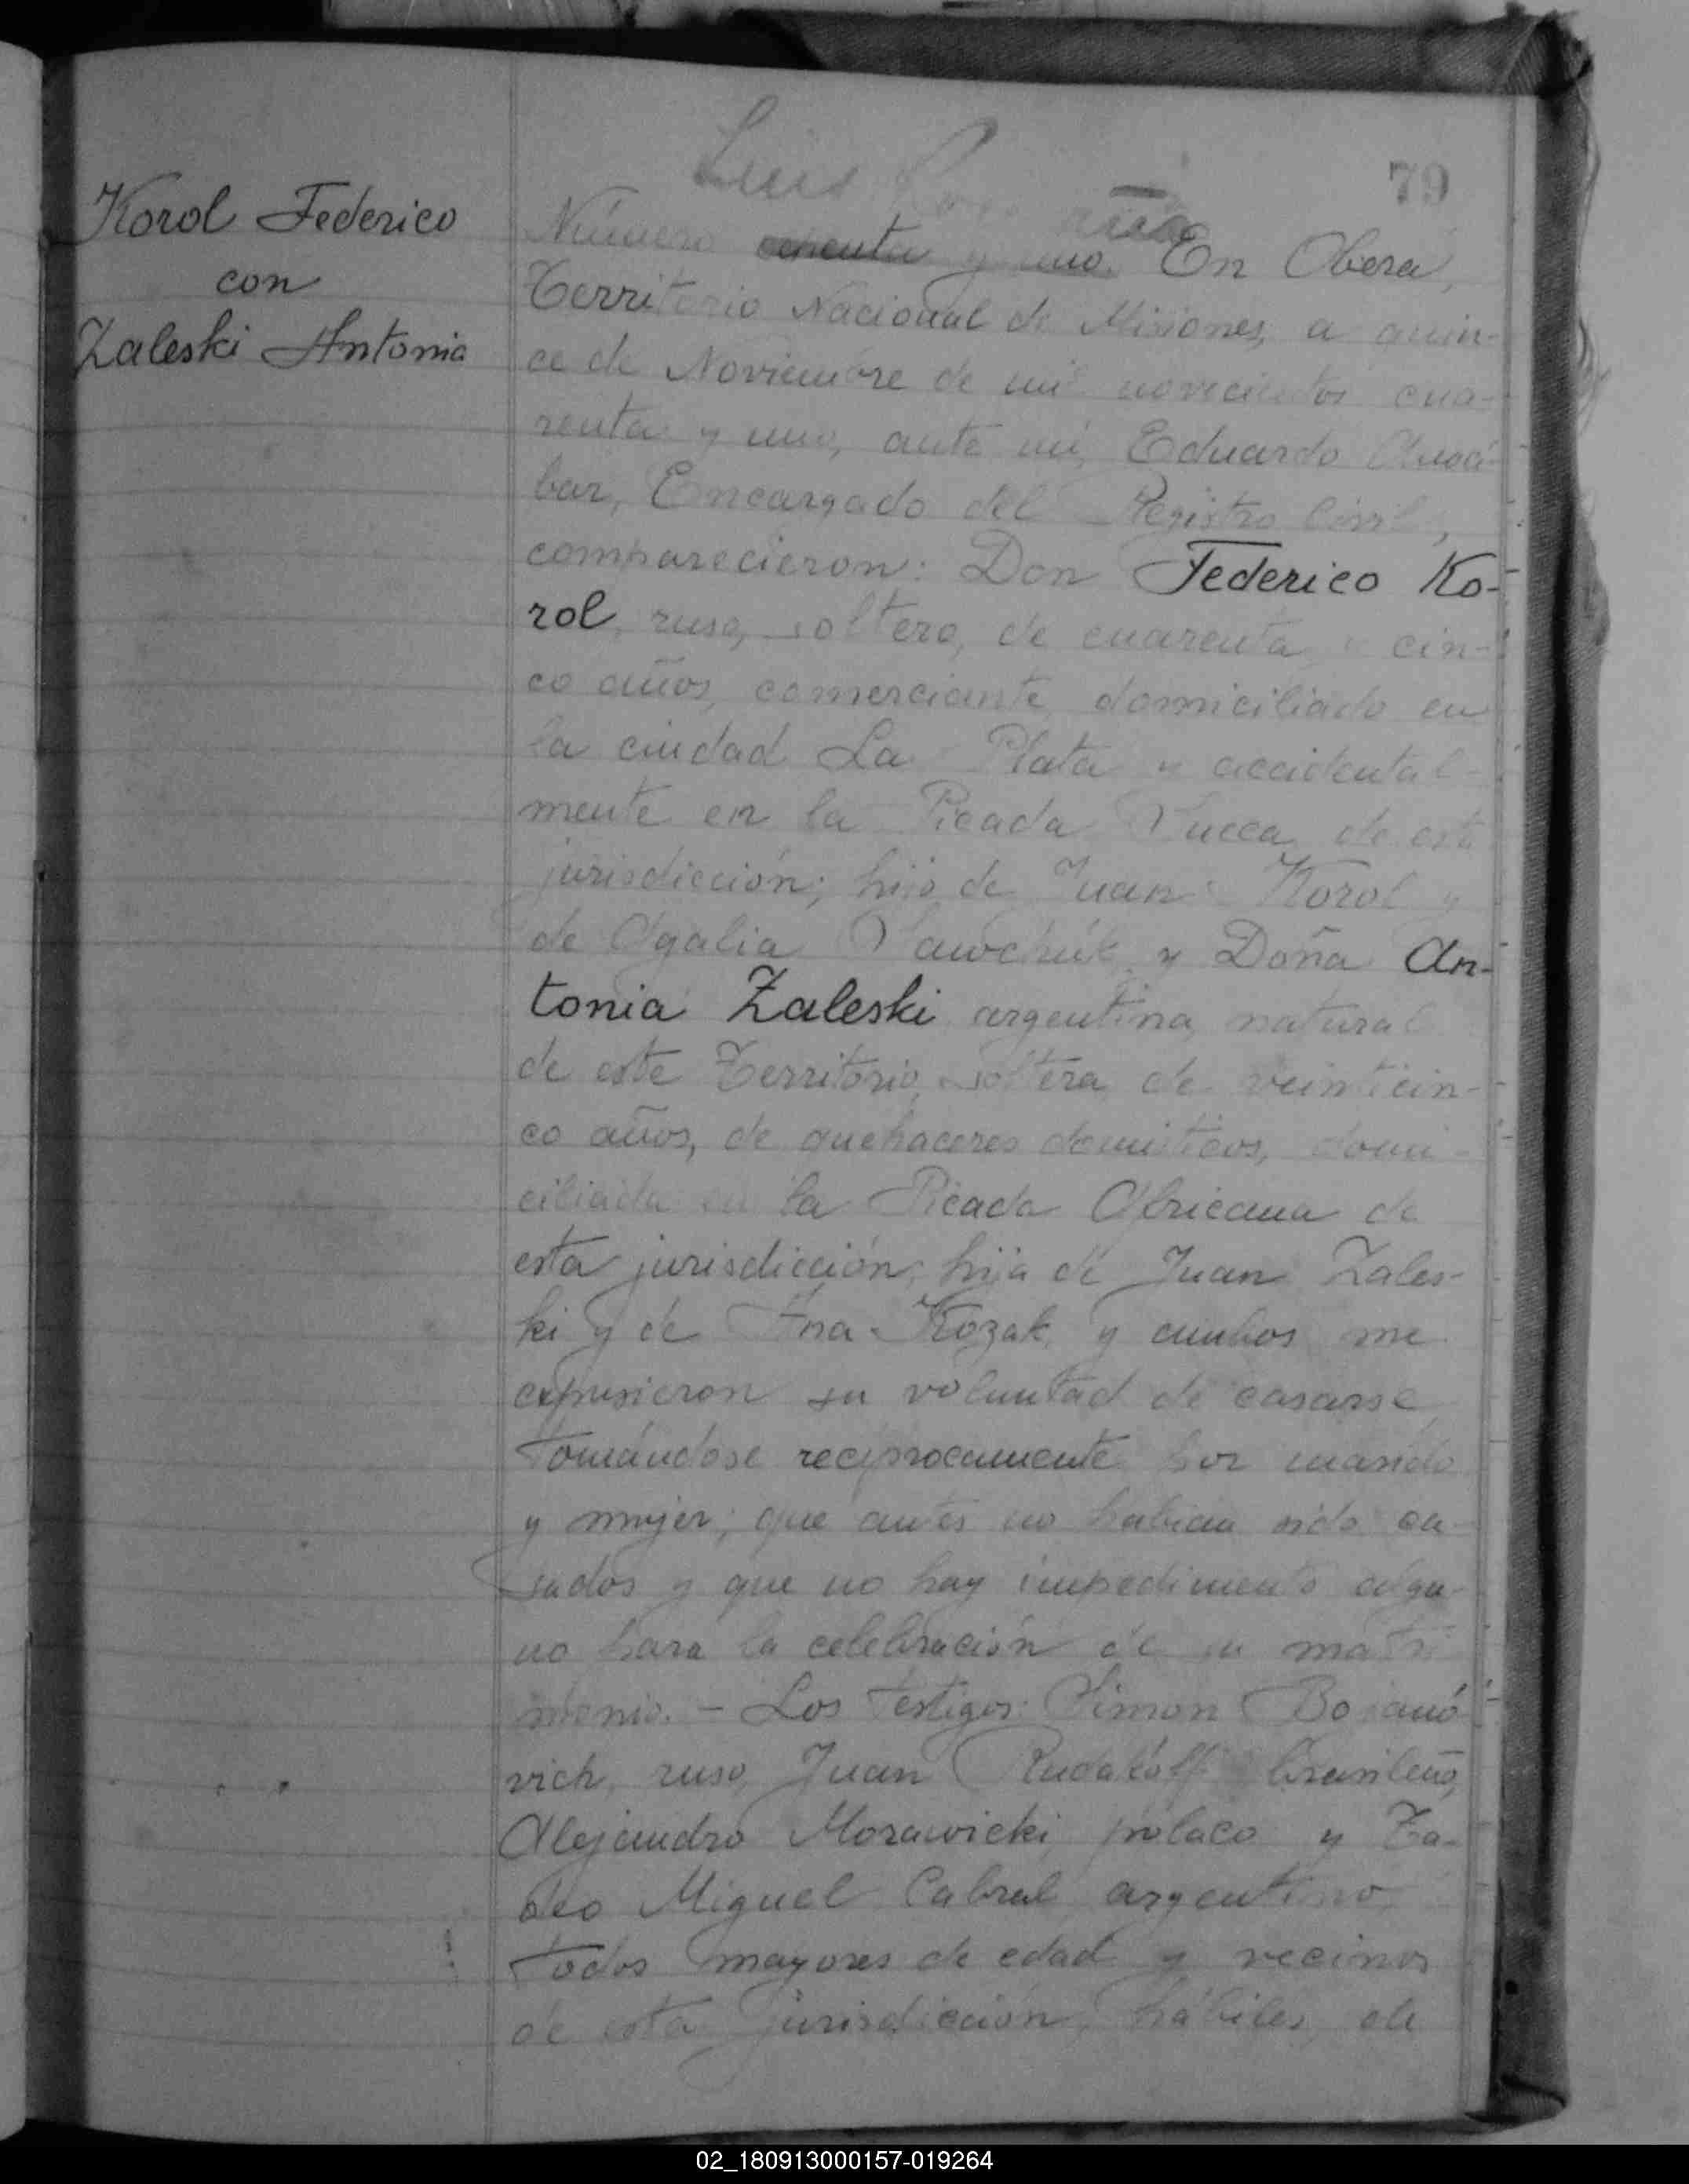 79
Korol Federico
con
Zaleski Antonia
Luis
Número y uno. En Oberá,
Territorio Nacional de Misiones, a quin-
ce de Noviembre de mil novecientos cua-
renta y uno, ante mí, Eduardo
bar, Encargado del Registro Civil,
comparecieron: Don Federico Ko-
rol, ruso, soltero, de cuarenta y cin-
co años, comerciante, domiciliado en
la ciudad La Plata y accidental-
mente en la Picada Sueca de esta
jurisdicción; hijo de Juan Korol y
de Ogalia Sawchuk y Doña An-
tonia Zaleski argentina, natural
de este Territorio, soltera, de veinticin-
co años, de quehaceres domésticos, domi-
ciliada en la Picada Africana de
esta jurisdicción; hija de Juan Zales-
ki y de Ana Kozak, y ambos me
expusieron su voluntad de casarse,
tomándose recíprocamente por marido
y mujer; que antes no habían sido ca-
sados y que no hay impedimento algu-
no para la celebración de su matri-
monio. - Los testigos: Simon Bojanó
vich, ruso, Juan brasileño,
Alejandro Morawicki, polaco y Ta-
deo Miguel Cabral argentino,
todos mayores de edad y vecinos
de esta jurisdicción, hábiles, de
02_180913000157-019264